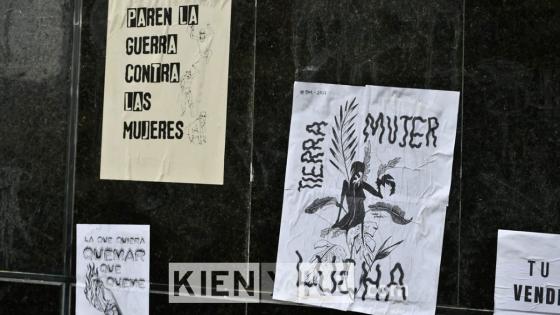 PAREN LA
GUERRA
CONTRA
LAS
MUJERES
TIERRA
MUJER
LUCHA
LA QUE QUIERA
QUEMAR
QUE
QUEME
TU
VENDE
KIEN